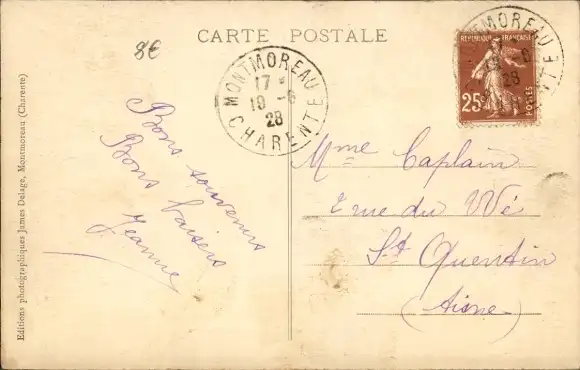 8€
CARTE POSTALE
MONTMOREAU
17
10-6
28
CHARENTE
REPUBLIQUE FRANÇAISE
25c
POSTES
Bons souvenirs
Bons baisers
Jeanne
Mme Caplain
rue du
St Quentin
(Aisne)
Editions photographiques James Delage, Montmoreau (Charente)